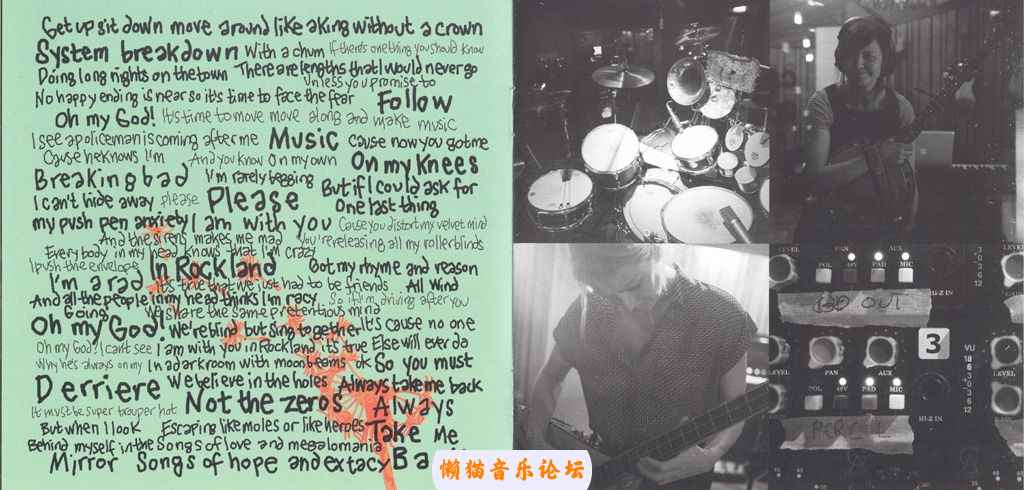 Get up sit down move around like a king without a crown
System breakdown With a chum if theres one thing you should know
Doing long nights on the town There are lengths that I would never go
Unless you promise to
No happy ending is near so its time to face the fear Follow
Oh my God! Its time to move move along and make music
I see a policeman is coming after me Music cause now you got me
Cause he knows I'm And you know On my own On my Knees
Breaking bad I'm rarely begging But if I could ask for
I can't hide away please Please One last thing
my push pen anxiety I am with you Cause you distort my velvet mind
And the sirens makes me mad You're releasing all my rollerblinds
Every body in my head knows that I'm crazy
I push the envelope In Rockland Got my rhyme and reason
I'm a rad Its true that we just had to be friends All Wind
And all the people in my head thinks I'm racy So if I'm driving after you
Going We share the same pretentious mind
Oh my God! We're blind but Sing together It's cause no one
Oh my God! I cant see I am with you in Rockland its true Else will ever do
Why he's always on my In a dark room with moonbeams ok So you must
Derriere We believe in the holes Always take me back
It must be super trouper hot Not the zeros Always
But when I look Escaping like moles or like heroes Take Me
Behind myself in the Songs of love and megalomania
Mirror Songs of hope and extacy Ba
LEVEL PAN AUX
POL 48V PAD MIC
HI-Z IN
3
0
3
6
12
LEVEL
3
VU
18
6
3
0
3
6
12
LEVEL
PAN AUX
POL 48V PAD MIC
HI-Z IN
懒猫音乐论坛